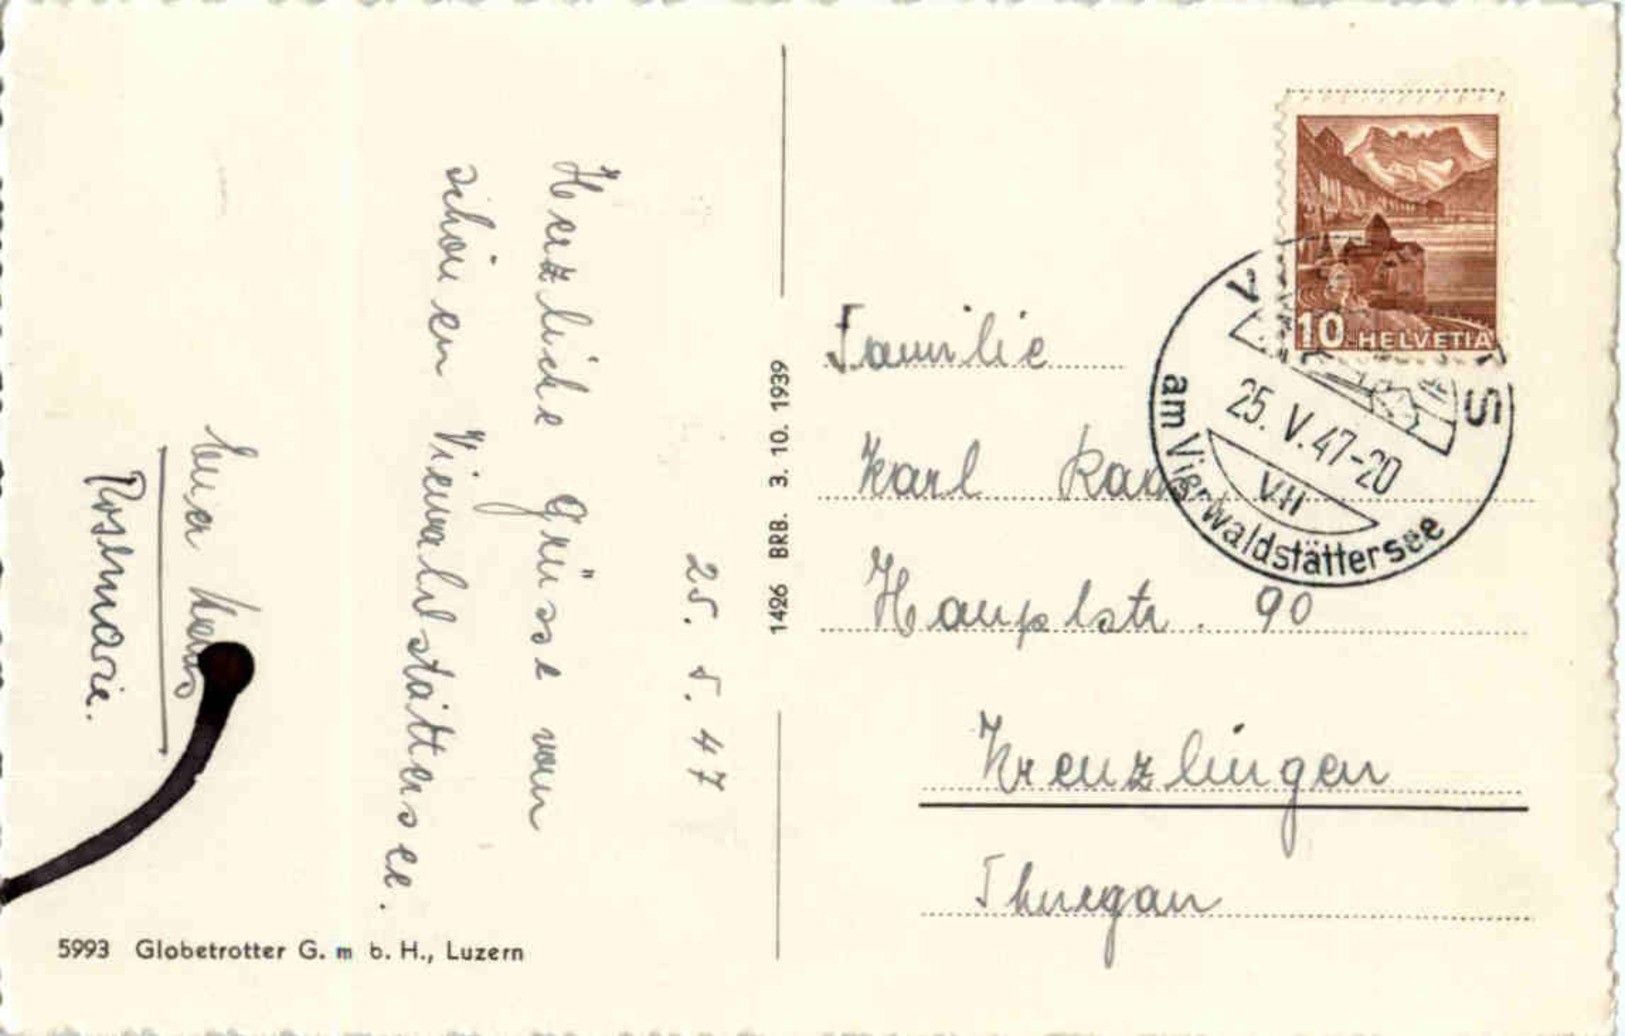 25. 5. 47
Herzliche Grüsse vom
schönen Vierwaldstättersee.
Euer
Rosmarie.
5993 Globetrotter G. m b. H., Luzern
1426 BRB. 3. 10. 1939
10 HELVETIA
25. V. 47-20
VII
am Vierwaldstättersee
Familie
Karl
Hauptstr. 90
Kreuzlingen
Thurgau